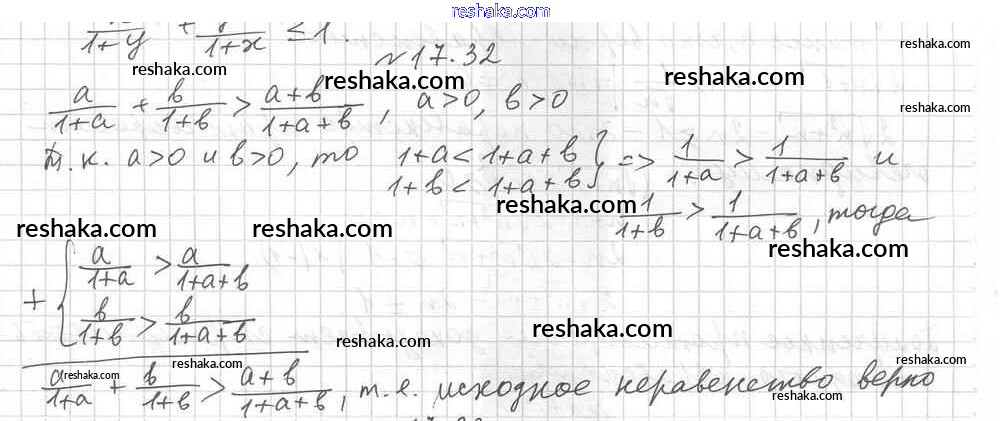 reshaka.com
/1+y + /1+x ≤ 1. reshaka.com
№ 17.32
reshaka.com reshaka.com reshaka.com
a/1+a + b/1+b > a+b/1+a+b, a>0, b>0 reshaka.com
Т.к. a>0 и b>0, то 1+a < 1+a+b } => 1/1+a > 1/1+a+b и
1+b < 1+a+b
reshaka.com 1/1+b > 1/1+a+b, тогда
reshaka.com reshaka.com reshaka.com
+ { a/1+a > a/1+a+b
b/1+b > b/1+a+b reshaka.com
reshaka.com reshaka.com reshaka.com
reshaka.com
a/1+a + b/1+b > a+b/1+a+b, т.е. исходное неравенство верно
reshaka.com